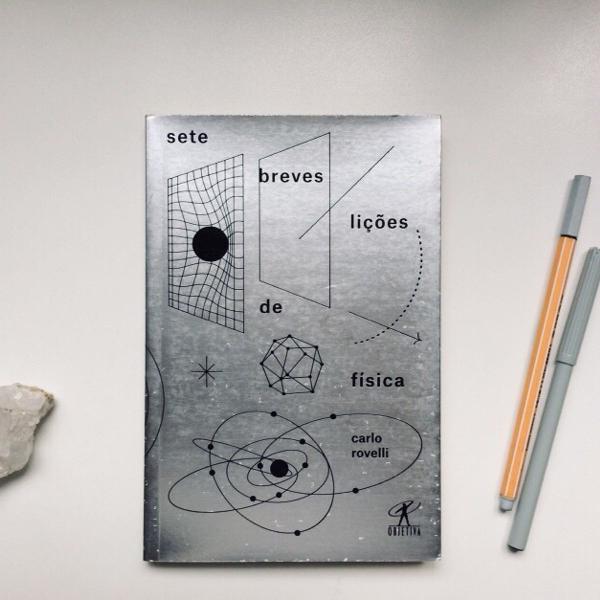 sete
breves
lições
de
física
carlo
rovelli
OBJETIVA